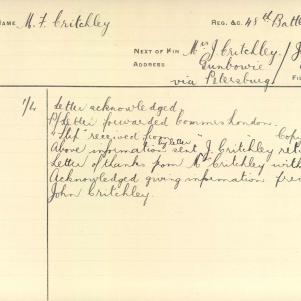 NAME M. F. Critchley REG. &C. 48th Batt
NEXT OF KIN Mrs J Critchley /
ADDRESS Eurelia
via Petersburg
Letter acknowledged.
Letter forwarded Commrs London.
received from " " Cop
Above information sent by letter J. Critchley ret
Letter of thanks from Mr Critchley with
Acknowledged giving information fre
John Critchley